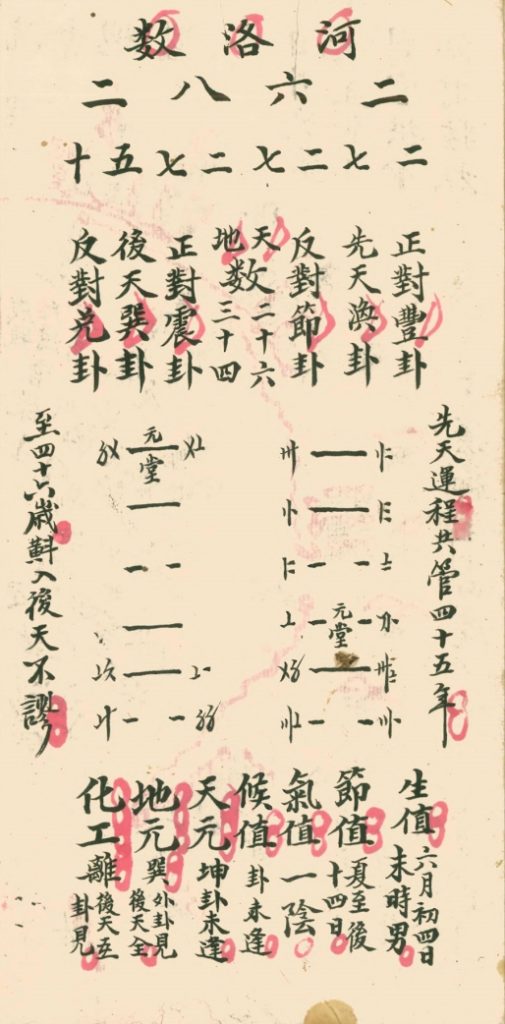 河洛数
二六八二
二七二七二七五十
正對豐卦
先天渙卦
反對節卦
天数二十六
地三十四
正對震卦
後天巽卦
反對兌卦
先天運程共管四十五年
元堂
元堂
至四十六歲斢入後天不謬
生值六月初四日
未時男
節值夏至後
十四日
氣值一陰
候值卦未逢
天元坤卦未逢
地元巽外卦見
後天全
化工離後天互
卦見